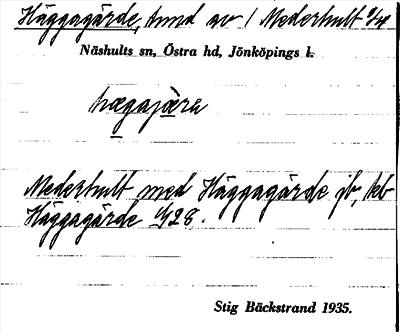 Häggagärde, tmd av 1 Mederhult 9/4
Näshults sn, Östra hd, Jönköpings l.
hægajæra
Mederhult med Häggagärde jb,
Häggagärde 1928.
Stig Bäckstrand 1935.